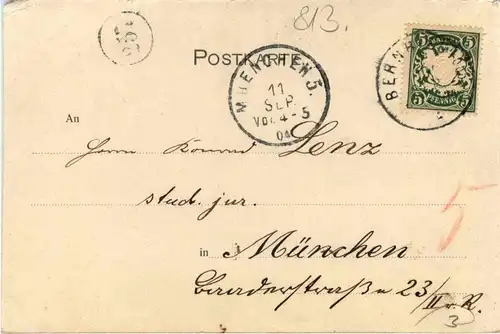 813.
POSTKARTE
5 5
PFENNIG
5 5
BERN
MUENCHEN 5.
11
SEP.
Vor. 4-5
04
An
Herrn Konrad Lenz
stud. jur.
in München
Baaderstraße 23/II v. R.
3